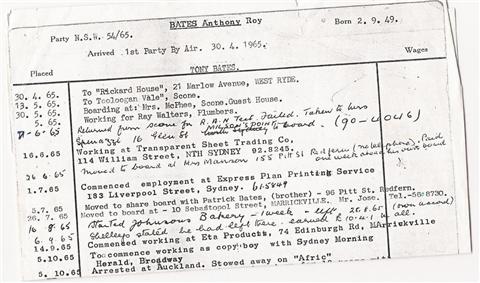 BATES Anthony Roy
Party N.S.W. 54/65. Born 2. 9. 49.
Arrived 1st Party By Air. 30. 4. 1965.
Placed Wages
TONY BATES.
30. 4. 65 To "Rickard House", 21 Marlow Avenue, WEST RYDE.
13. 5. 65. To "Tooloogan Vale", Scone.
30. 5. 65 Boarding at: Mrs. McPhee, Scone. Guest House.
5. 65. Working for Ray Walters, Plumbers.
-6-65 Returned from Scone for R.A.N Test. Failed. Taken to Mrs
16 Glen St MILSON'S POINT to board. (90-4046)
16.6.65 Working at Transparent Sheet Trading Co,
114 William Street, NTH SYDNEY 92.8245.
24 6.65 Moved to board at Mrs Manson 155 Pitt St Redfern (no telephone). Paid one week board
1.7.65 Commenced employment at Express Plan Printing Service
183 Liverpool Street, Sydney. 61-5849
5.7. 65 Moved to share board with Patrick Bates, (brother) - 96 Pitt St. Redfern.
26.7. 65 Moved to board at - 10 Sebastopol Street, MARRICKVILLE. Mr. Jose. Tel.-56 8730.
16 - 8 65 Started Johnsons Bakery - 1 week - left 21.8.65 (own accord)
6. 9 65 stated he had left here. earned £10.10.1 in all.
14.9.65 Commenced working at Eta Products, 74 Edinburgh Rd, Marrickville
5.10.65 To commence working as copy boy with Sydney Morning
Herald, Broadway
5. 10.65 Arrested at Auckland. Stowed away on "Afric"